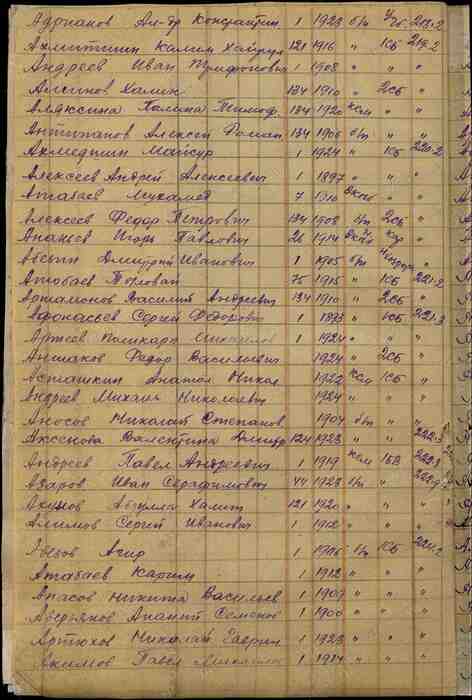 Адрианов Ал-др Констратин 1 1923 б/п Уб 219-2
Ахмитшин Калим 121 1916 " 1сб 219-2
Андреев Иван Трифонович 1 1908 " " "
Халик 134 1910 " 2сб "
Галина Тимоф. 134 1920 ксм " "
Антипанов Алексей Роман 134 1906 б/п " "
Ахмедшин Майсур 1 1924 " 1сб 220-2
Алексеев Андрей Алексеевич 1 1897 " " "
Атабаев Мухамед 7 1910 " "
Алексеев Федор Петрович 134 1908 б/п 2сб "
Ананьев Игорь Павлович 26 1914
Дмитрий Иванович 1 1905 б/п
Атобаев 75 1915 " 1сб 221-2
Артамонов Василий Андреевич 134 1910 " 2сб "
Афонасьев Сергей Федорович 1 1895 " 1сб 221.3
Артеев Поликарп Михайлов 1 1924 " " "
Аншаков Федор Васильевич 1924 " 2сб "
Асташкин Анатол Никол. 1922 ксм 1сб "
Андреев Михаил Николаевич 1924 " " "
Аносов Николай Степанов. 1904 б/п " "
Аксенова Валентина Дмитр 124 1923 " " 222-3
Андреев Павел Андреевич 1 1919 ксм 1БВ 222.3
Азаров Иван Серафимович 44 1923 б/п " 222-9
Абдулла Халит 121 1920 " " "
Алимов Сергей Иванович 1 1912 " " "
1 1906 б/п 1сб
Атабаев Карим 1 1912 " " "
Апасов Никита Васильев 1 1909 " " "
Аверьянов Анант Семенов 1 1900 " " "
Артюхов Николай Гаврил 1 1923 " " "
Акимов Павел Михайлов 1 1914 " " "